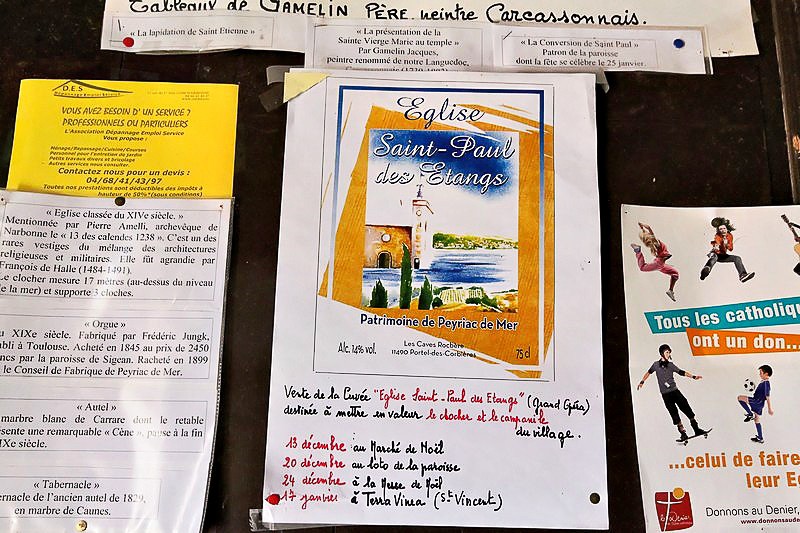 Tableaux de GAMELIN PÈRE, peintre Carcassonnais.
« La lapidation de Saint Etienne »
« La présentation de la
Sainte Vierge Marie au temple »
Par Gamelin Jacques,
peintre renommé de notre Languedoc,
« La Conversion de Saint Paul »
Patron de la paroisse
dont la fête se célèbre le 25 janvier.
D.E.S
Dépannage Emploi Service
VOUS AVEZ BESOIN D' UN SERVICE ?
PROFESSIONNELS OU PARTICULIERS
L'Association Dépannage Emploi Service
Vous propose :
Ménage/Repassage/Cuisine/Courses
Personnel pour l'entretien de jardin
Petits travaux divers et bricolage
Autres services nous consulter.
Contactez nous pour un devis :
04/68/41/43/97
Toutes nos prestations sont déductibles des impôts à
hauteur de 50%*(sous conditions)
« Eglise classée du XIVe siècle. »
Mentionnée par Pierre Amelli, archevèque de
Narbonne le « 13 des calendes 1238 ». C'est un des
rares vestiges du mélange des architectures
religieuses et militaires. Elle fût agrandie par
François de Halle (1484-1491).
Le clocher mesure 17 mètres (au-dessus du niveau
de la mer) et supporte 3 cloches.
« Orgue »
du XIXe siècle. Fabriqué par Frédéric Jungk,
établi à Toulouse. Acheté en 1845 au prix de 2450
francs par la paroisse de Sigean. Racheté en 1899
le Conseil de Fabrique de Peyriac de Mer.
« Autel »
marbre blanc de Carrare dont le retable
présente une remarquable « Cène », pause à la fin
XIXe siècle.
« Tabernacle »
Tabernacle de l'ancien autel de 1829,
en marbre de Caunes.
Eglise
Saint-Paul
des Etangs
Patrimoine de Peyriac de Mer
Alc. 14% vol.
Les Caves Rocbère
11490 Portel-des-Corbières
75 cl
Vente de la Cuvée "Eglise Saint-Paul des Etangs" (Grand Opéra)
destinée à mettre en valeur le clocher et le campanile
du village.
13 décembre au Marché de Noël
20 décembre au loto de la paroisse
24 décembre à la Messe de Noël
17 janvier à Terra Vinea (St Vincent)
Tous les catholiqu
ont un don...
...celui de faire
leur E
le Denier
Donnons au Denier,
www.donnonsaude